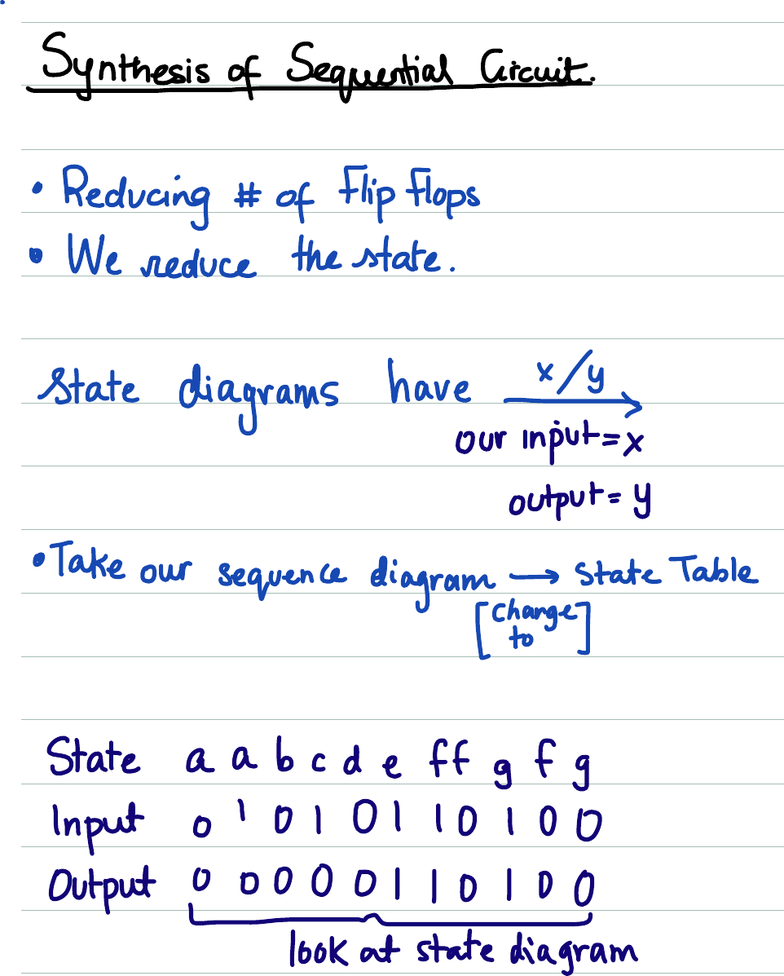 Synthesis of Sequential Circuit.
• Reducing # of Flip Flops
• We reduce the state.
State diagrams have x/y
our input = x
output = y
• Take our sequence diagram → State Table
[change
to]
State a a b c d e f f g f g
Input 0 1 0 1 0 1 1 0 1 0 0
Output 0 0 0 0 0 1 1 0 1 0 0
look at state diagram